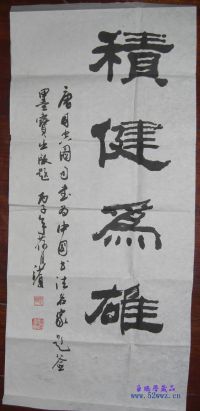 積健為雄
唐司空圖句書為中國書法名家題簽
墨寶出版題 丙子年
www.52wwz.cn